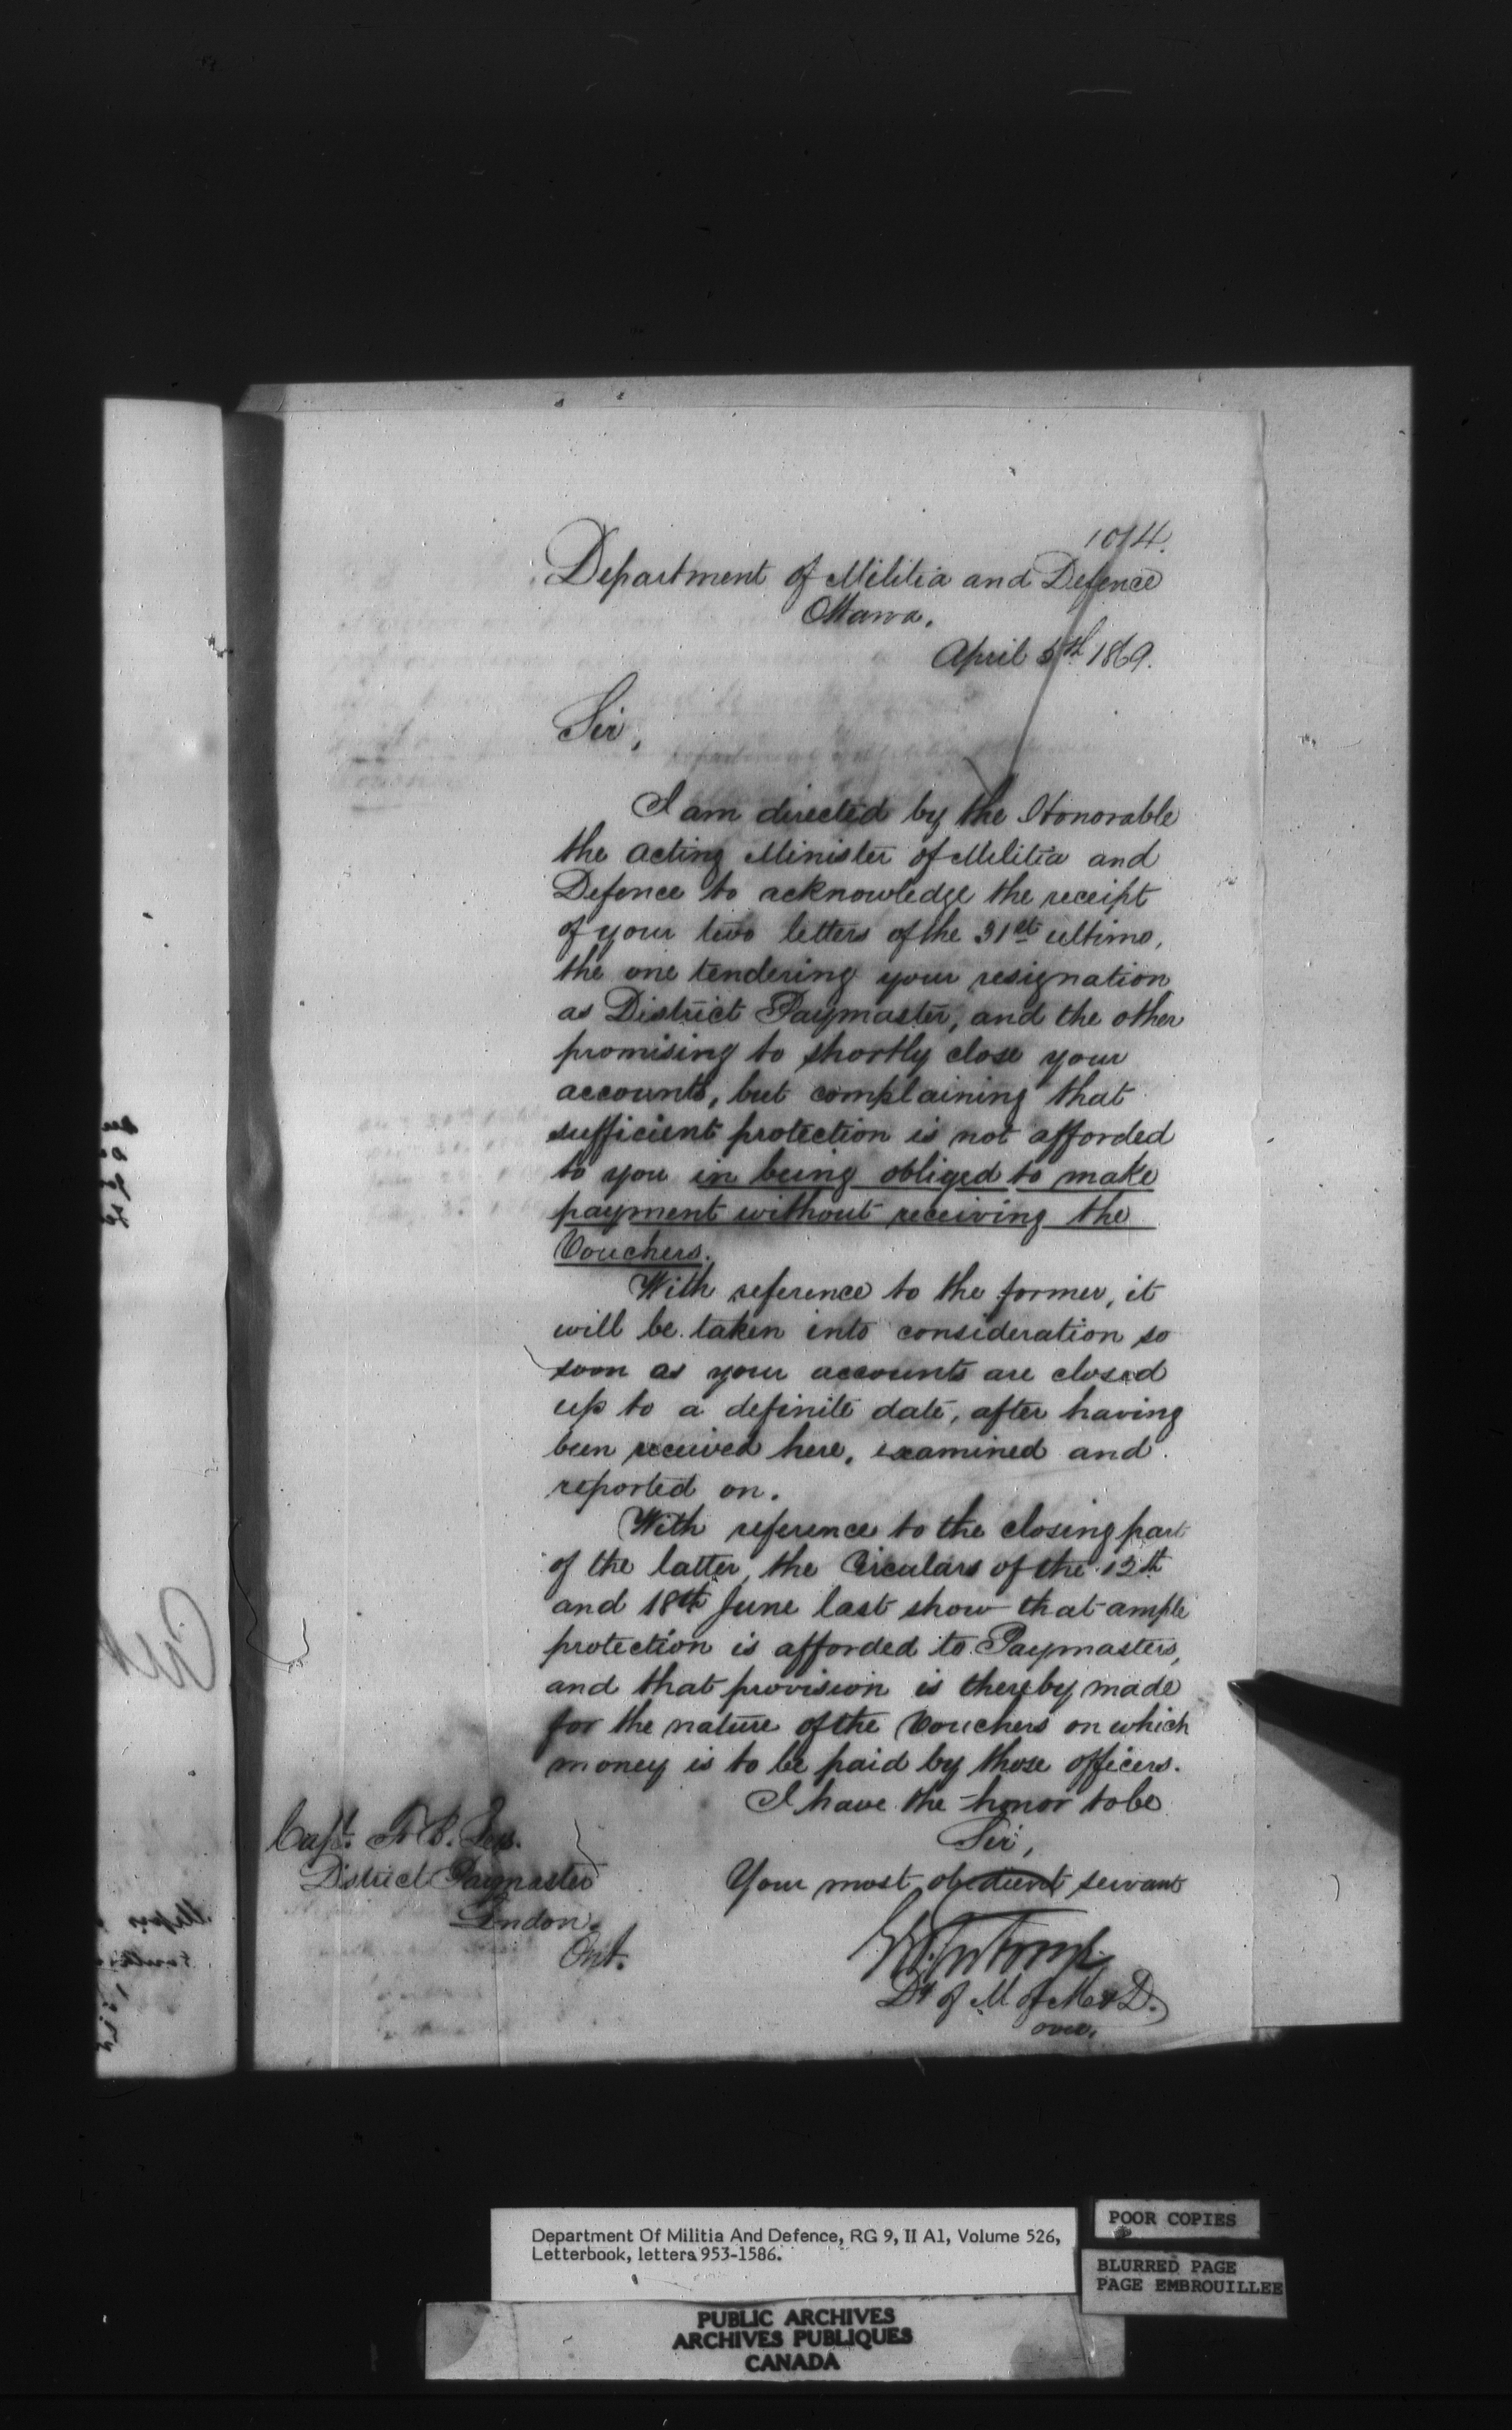 1014.
Department of Militia and Defence
Ottawa.
April 5th 1869.
Sir,
I am directed by the Honorable
the acting Minister of Militia and
Defence to acknowledge the receipt
of your two letters of the 31st ultimo,
the one tendering your resignation
as District Paymaster, and the other
promising to shortly close your
accounts, but complaining that
sufficient protection is not afforded
to you in being obliged to make
payment without receiving the
Vouchers.
With reference to the former, it
will be taken into consideration so
soon as your accounts are closed
up to a definite date, after having
been received here, examined and
reported on.
With reference to the closing part
of the latter, the Circulars of the 12th
and 18th June last show that ample
protection is afforded to Paymasters,
and that provision is thereby made
for the nature of the Vouchers on which
money is to be paid by those officers.
I have the honor to be
Sir,
Your most obedient servant
Dy of M of M & D.
over.
Capt.
District Paymaster
London.
Ont.
Department Of Militia And Defence, RG 9, II A1, Volume 526,
Letterbook, letters 953-1586.
POOR COPIES
BLURRED PAGE
PAGE EMBROUILLEE
PUBLIC ARCHIVES
ARCHIVES PUBLIQUES
CANADA